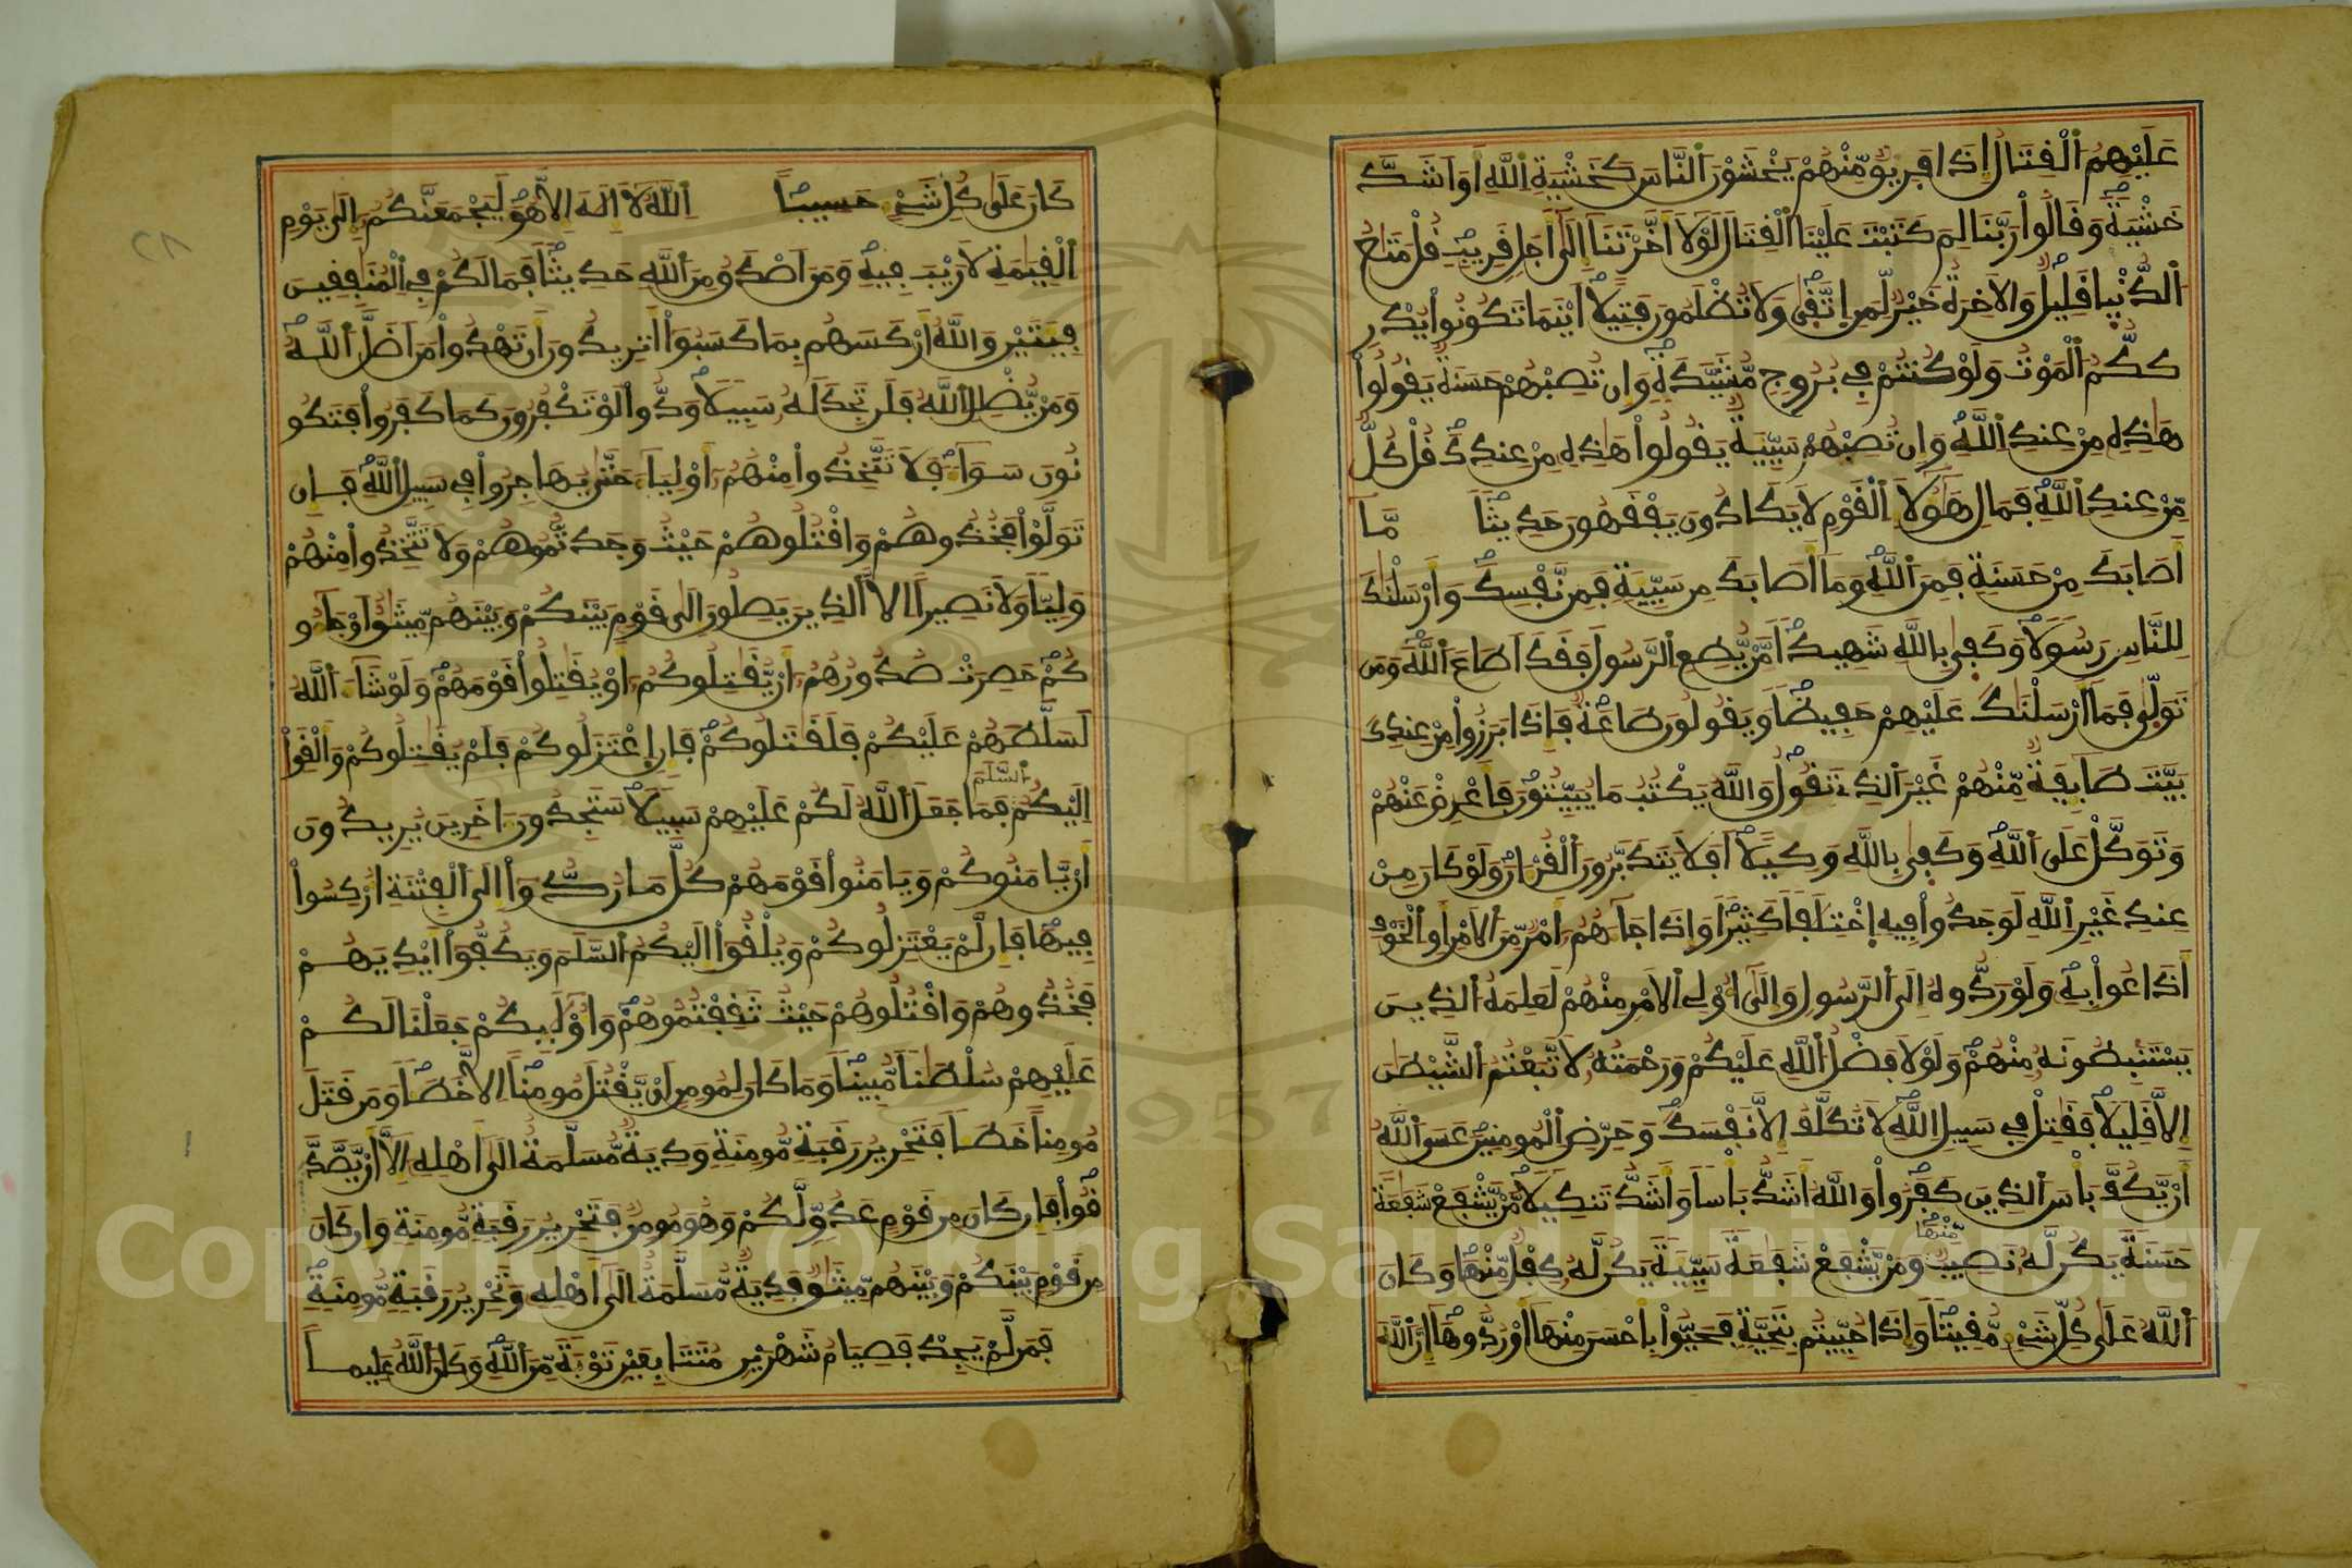 عَلَيْهِمُ اُلْقِتَالُ إِذَا فَرِيقٌ مِّنْهُمْ يَخْشَوْنَ اَلنَّاسَ كَخَشْيَةِ اِللَّهِ أَوَ اَشَدَّ
خَشْيَةً وَقَالُواْ رَبَّنَا لِمَ كَتَبْتَ عَلَيْنَا اَلْقِتَالَ لَوْلَا أَخَّرْتَنَا إِلَىٰ أَجَلٍ قَرِيبٍ قُلْ مَتَٰعُ
اُلدُّنْيا قَلِيلٌ وَالَاخِرَةُ خَيْرٌ لِّمَنِ اِتَّقَىٰ وَلَا تُظْلَمُونَ فَتِيلًا اَيْنَمَا تَكُونُواْ يُدْرِ
ككُّمُ اُلْمَوْتُ وَلَوْ كُنتُمْ فِي بُرُوجٍ مُّشَيَّدَةٍ وَإِن تُصِبْهُمْ حَسَنَةٌ يَقُولُواْ
هَٰذِهِ مِنْ عِندِ اِللَّهِ وَإِن تُصِبْهُمْ سَيِّئَةٌ يَقُولُواْ هَٰذِهِ مِنْ عِندِكَ قُلْ كُلٌّ
مِّنْ عِندِ اِللَّهِ فَمَالِ هَٰؤُلَاءِ اِلْقَوْمِ لَا يَكَادُونَ يَفْقَهُونَ حَدِيثًا مَّا
أَصَابَكَ مِنْ حَسَنَةٍ فَمِنَ اَللَّهِ وَمَا أَصَابَكَ مِن سَيِّئَةٍ فَمِن نَّفْسِكَ وَأَرْسَلْنَٰكَ
لِلنَّاسِ رَسُولًا وَكَفَىٰ بِاللَّهِ شَهِيدًا مَّنْ يُّطِعِ اِلرَّسُولَ فَقَدَ اَطَاعَ اَللَّهَ وَمَن
تَوَلَّىٰ فَمَا أَرْسَلْنَٰكَ عَلَيْهِمْ حَفِيظًا وَيَقُولُونَ طَاعَةٌ فَإِذَا بَرَزُواْ مِنْ عِندِكَ
بَيَّتَ طَائِفَةٌ مِّنْهُمْ غَيْرَ اَلذِي تَقُولُ وَاللَّهُ يَكْتُبُ مَا يُبَيِّتُونَ فَأَعْرِضْ عَنْهُمْ
وَتَوَكَّلْ عَلَى اَللَّهِ وَكَفَىٰ بِاللَّهِ وَكِيلًا اَفَلَا يَتَدَبَّرُونَ اَلْقُرْءَانَ وَلَوْ كَانَ مِنْ
عِندِ غَيْرِ اِللَّهِ لَوَجَدُواْ فِيهِ اِخْتِلَٰفًا كَثِيرًا وَإِذَا جَاءَهُمُ أَمْرٌ مِّنَ اَلَامْنِ أَوِ اِلْخَوْفِ
أَذَاعُواْ بِهِ وَلَوْ رَدُّوهُ إِلَى اَلرَّسُولِ وَإِلَىٰ أُوْلِي اِلَامْرِ مِنْهُمْ لَعَلِمَهُ اُلذِينَ
يَسْتَنۢبِطُونَهُ مِنْهُمْ وَلَوْلَا فَضْلُ اُللَّهِ عَلَيْكُمْ وَرَحْمَتُهُ لَاتَّبَعْتُمُ اُلشَّيْطَٰنَ
إِلَّا قَلِيلًا فَقَٰتِلْ فِي سَبِيلِ اِللَّهِ لَا تُكَلَّفُ إِلَّا نَفْسَكَ وَحَرِّضِ اِلْمُومِنِينَ عَسَى اَللَّهُ
أَنْ يَّكُفَّ بَأْسَ اَلذِينَ كَفَرُواْ وَاللَّهُ أَشَدُّ بَأْسًا وَأَشَدُّ تَنكِيلًا مَّنْ يَّشْفَعْ شَفَٰعَةً
حَسَنَةً يَكُن لَّهُ نَصِيبٌ مِّنْهَا وَمَنْ يَّشْفَعْ شَفَٰعَةً سَيِّئَةً يَكُن لَّهُ كِفْلٌ مِّنْهَا وَكَانَ
اَللَّهُ عَلَىٰ كُلِّ شَيْءٍ مُّقِيتًا وَإِذَا حُيِّيتُم بِتَحِيَّةٍ فَحَيُّواْ بِأَحْسَنَ مِنْهَا أَوْ رُدُّوهَا إِنَّ اَللَّهَ
كَانَ عَلَىٰ كُلِّ شَيْءٍ حَسِيبًا اِللَّهُ لَا إِلَٰهَ إِلَّا هُوَ لَيَجْمَعَنَّكُمُ إِلَىٰ يَوْمِ
اِلْقِيَٰمَةِ لَا رَيْبَ فِيهِ وَمَنَ اَصْدَقُ مِنَ اَللَّهِ حَدِيثًا فَمَا لَكُمْ فِي اِلْمُنَٰفِقِينَ
فِئَتَيْنِ وَاللَّهُ أَرْكَسَهُم بِمَا كَسَبُواْ أَتُرِيدُونَ أَن تَهْدُواْ مَنَ اَضَلَّ اَللَّهُ
وَمَنْ يُّضْلِلِ اِللَّهُ فَلَن تَجِدَ لَهُ سَبِيلًا وَدُّواْ لَوْ تَكْفُرُونَ كَمَا كَفَرُواْ فَتَكُو
نُونَ سَوَاءً فَلَا تَتَّخِذُواْ مِنْهُمُ أَوْلِيَاءَ حَتَّىٰ يُهَاجِرُواْ فِي سَبِيلِ اِللَّهِ فَإِن
تَوَلَّوْاْ فَخُذُوهُمْ وَاقْتُلُوهُمْ حَيْثُ وَجَدتُّمُوهُمْ وَلَا تَتَّخِذُواْ مِنْهُمْ
وَلِيًّا وَلَا نَصِيرًا اِلَّا اَلذِينَ يَصِلُونَ إِلَىٰ قَوْمٍ بَيْنَكُمْ وَبَيْنَهُم مِّيثَٰقٌ أَوْ جَاءُو
كُمْ حَصِرَتْ صُدُورُهُمُ أَنْ يُّقَٰتِلُوكُمُ أَوْ يُقَٰتِلُواْ قَوْمَهُمْ وَلَوْ شَاءَ اَللَّهُ
لَسَلَّطَهُمْ عَلَيْكُمْ فَلَقَٰتَلُوكُمْ فَإِنِ اِعْتَزَلُوكُمْ فَلَمْ يُقَٰتِلُوكُمْ وَأَلْقَوِاْ
إِلَيْكُمُ اُلسَّلَمَ فَمَا جَعَلَ اَللَّهُ لَكُمْ عَلَيْهِمْ سَبِيلًا سَتَجِدُونَ ءَاخَرِينَ يُرِيدُونَ
أَنْ يَّامَنُوكُمْ وَيَامَنُواْ قَوْمَهُمْ كُلَّ مَا رُدُّواْ إِلَى اَلْفِتْنَةِ أُرْكِسُواْ
فِيهَا فَإِن لَّمْ يَعْتَزِلُوكُمْ وَيُلْقُواْ إِلَيْكُمُ اُلسَّلَمَ وَيَكُفُّواْ أَيْدِيَهُمْ
فَخُذُوهُمْ وَاقْتُلُوهُمْ حَيْثُ ثَقِفْتُمُوهُمْ وَأُوْلَٰئِكُمْ جَعَلْنَا لَكُمْ
عَلَيْهِمْ سُلْطَٰنًا مُّبِينًا وَمَا كَانَ لِمُومِنٍ أَنْ يَّقْتُلَ مُومِنًا اِلَّا خَطَـًٔا وَمَن قَتَلَ
مُومِنًا خَطَـًٔا فَتَحْرِيرُ رَقَبَةٍ مُّومِنَةٍ وَدِيَةٌ مُّسَلَّمَةٌ اِلَىٰ أَهْلِهِ إِلَّا أَنْ يَّصَّدَّ
قُواْ فَإِن كَانَ مِن قَوْمٍ عَدُوٍّ لَّكُمْ وَهُوَ مُومِنٌ فَتَحْرِيرُ رَقَبَةٍ مُّومِنَةٍ وَإِن كَانَ
مِن قَوْمٍ بَيْنَكُمْ وَبَيْنَهُم مِّيثَٰقٌ فَدِيَةٌ مُّسَلَّمَةٌ اِلَىٰ أَهْلِهِ وَتَحْرِيرُ رَقَبَةٍ مُّومِنَةٍ
فَمَن لَّمْ يَجِدْ فَصِيَامُ شَهْرَيْنِ مُتَتَابِعَيْنِ تَوْبَةً مِّنَ اَللَّهِ وَكَانَ اَللَّهُ عَلِيمًا
1957
Copyright © King Saud University